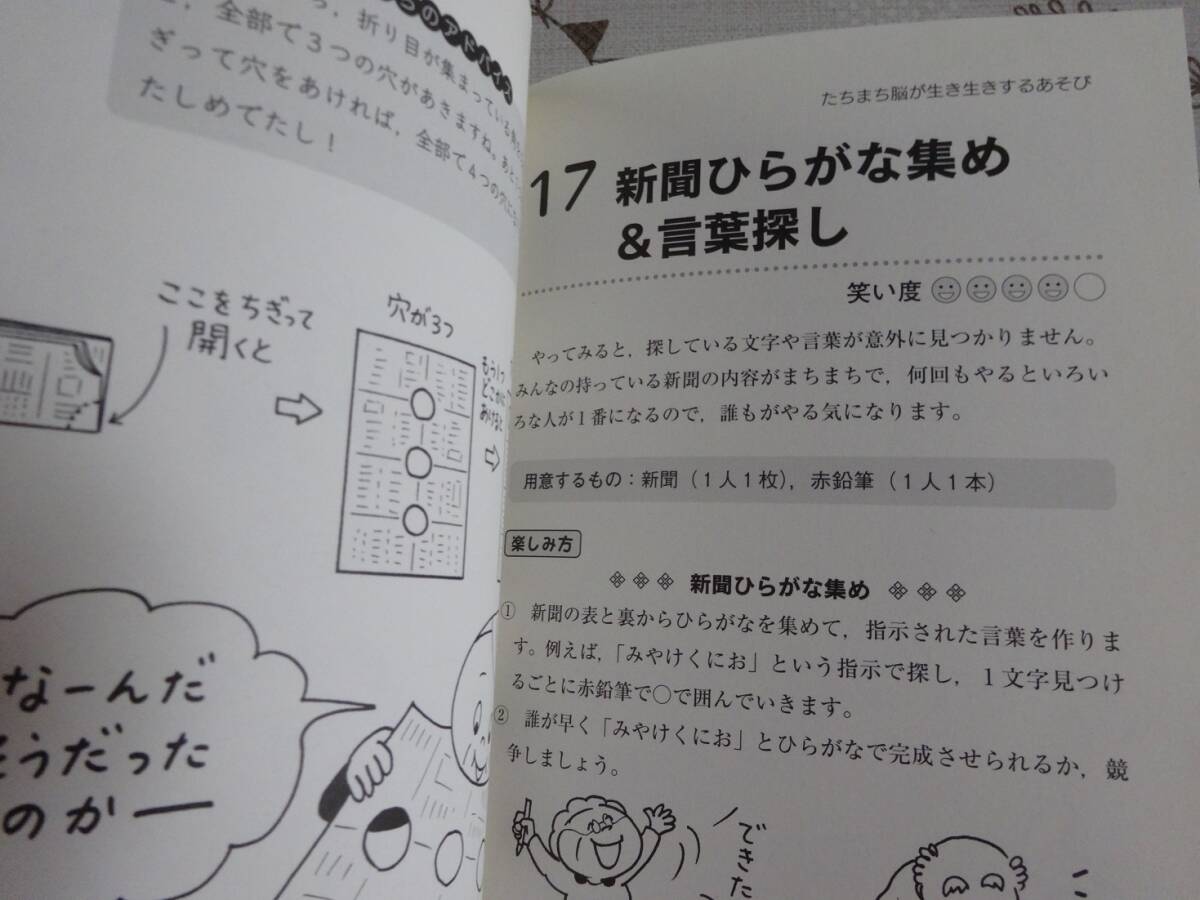 のアドバイス
折り目が集まっている
全部で3つの穴があきますね。あと
ぎって穴をあければ，全部で4つの穴に
たしめてたし！
ここをちぎって
開くと
穴が3つ
もう1つ
どこかに
あけると
なーんだ
そうだった
のかー
たちまち脳が生き生きするあそび
17 新聞ひらがな集め
＆言葉探し
笑い度
やってみると，探している文字や言葉が意外に見つかりません。
みんなの持っている新聞の内容がまちまちで，何回もやるといろい
ろな人が1番になるので，誰もがやる気になります。
用意するもの：新聞（1人1枚），赤鉛筆（1人1本）
楽しみ方
新聞ひらがな集め
① 新聞の表と裏からひらがなを集めて，指示された言葉を作りま
す。例えば，「みやけくにお」という指示で探し，1文字見つけ
るごとに赤鉛筆で○で囲んでいきます。
② 誰が早く「みやけくにお」とひらがなで完成させられるか，競
争しましょう。
できた